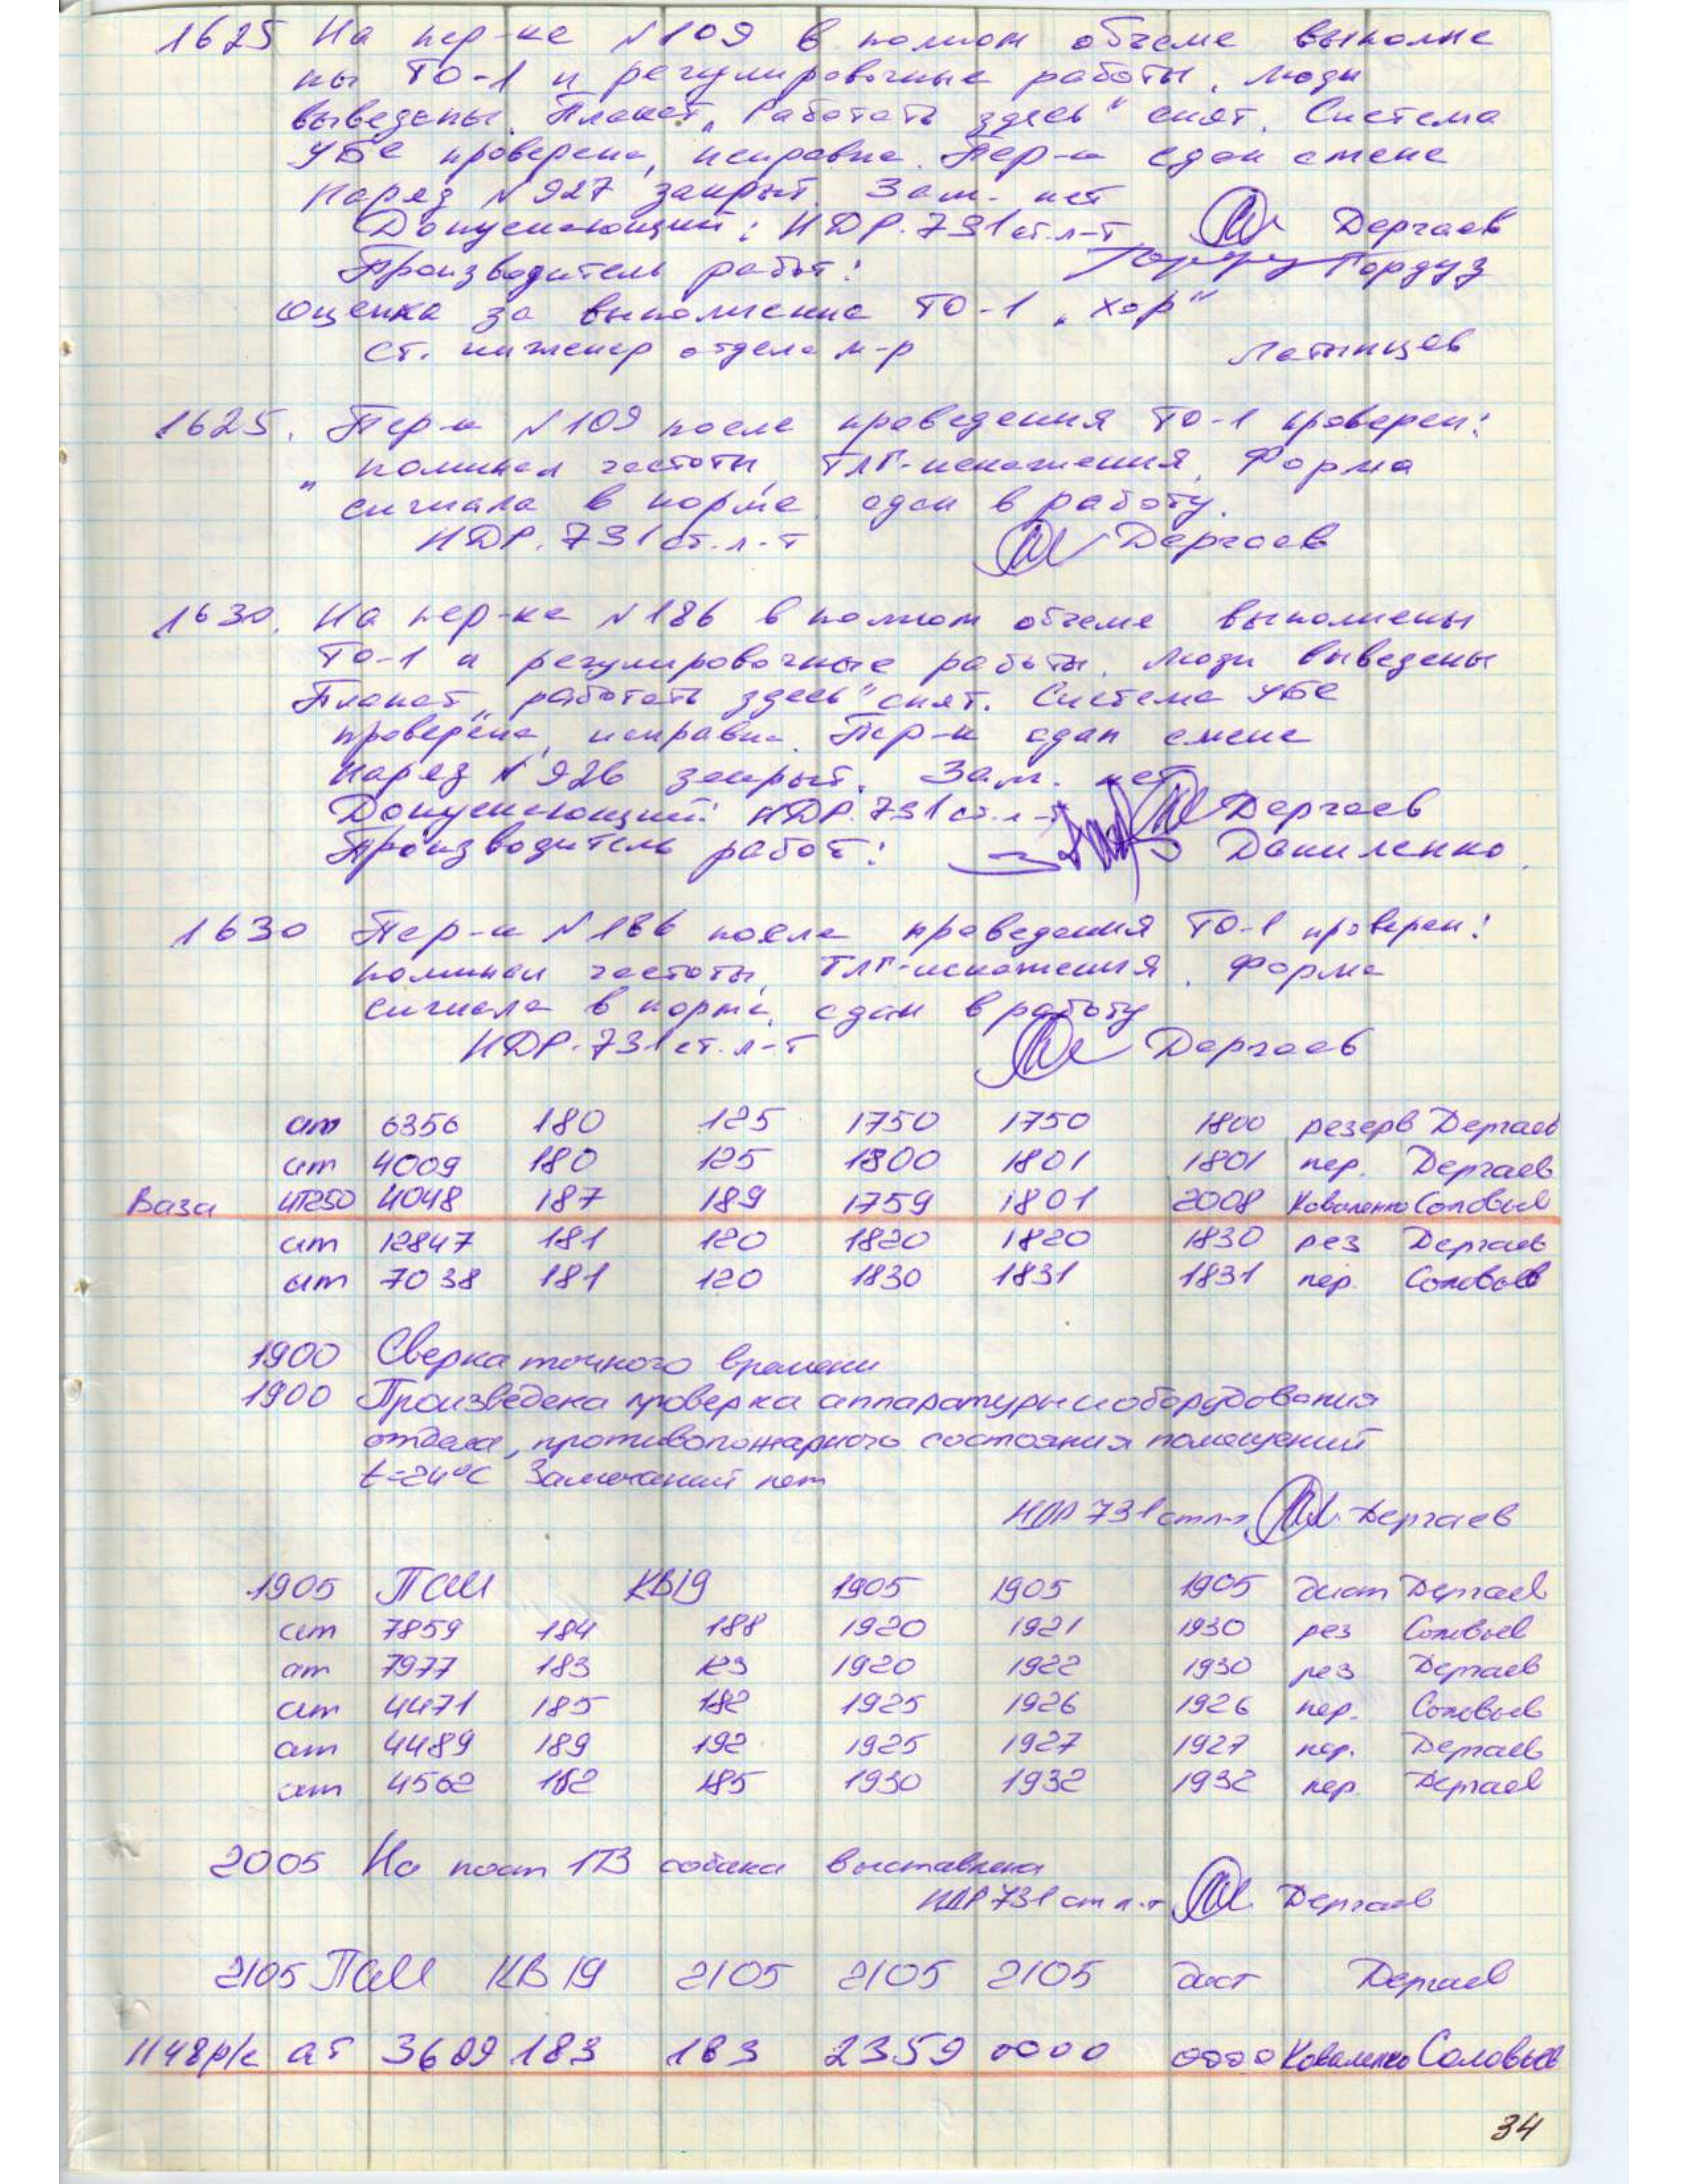 1625 На пер-ке №109 в полном объеме выполне
ны ТО-1 и регулировочные работы, люди
выведены. Плакат „Работать здесь" снят. Система
УБС проверена, исправна. Пер-к сдан смене
Наряд №927 закрыт. Зам. нет
Допускающий: НДР.731 ст.л-т Дергаев
Производитель работ: Гордуз
Оценка за выполнение ТО-1 „хор"
ст. инженер отдела м-р Латынцев
1625. Пер-к №109 после проведения ТО-1 проверен:
номинал частоты, ТЛГ-искажения, Форма
сигнала в норме, сдан в работу.
НДР.731 ст.л-т Дергаев
1630. На пер-ке №186 в полном объеме выполнены
ТО-1 и регулировочные работы, люди выведены
Плакат „работать здесь" снят. Система УБС
проверена, исправна. Пер-к сдан смене
Наряд №926 закрыт. Зам. нет
Допускающий: НДР.731 ст.л-т Дергаев
Производитель работ: Даниленко.
1630 Пер-к №186 после проведения ТО-1 проверен:
номинал частоты, ТЛГ-искажения, Форма
сигнала в норме, сдан в работу
НДР.731 ст.л-т Дергаев
ат 6356 180 125 1750 1750 1800 резерв Дергаев
ат 4009 180 125 1800 1801 1801 пер. Дергаев
Ваза ЧТ250 4048 187 189 1759 1801 2008 Коваленко Соловьев
ат 12847 181 120 1820 1820 1830 рез Дергаев
ат 7038 181 120 1830 1831 1831 пер. Соловьев
1900 Сверка точного времени
1900 Произведена проверка аппаратуры и оборудования
отдела, противопожарного состояния помещений
t=24°С Замечаний нет
НДР 731 ст л-т Дергаев
1905 ПСИ КВ19 1905 1905 1905 дист Дергаев
ат 7859 184 188 1920 1921 1930 рез Соловьев
ат 7977 183 123 1920 1922 1930 рез Дергаев
ат 4471 185 182 1925 1926 1926 пер. Соловьев
ат 4489 189 192 1925 1927 1927 пер. Дергаев
ат 4562 182 185 1930 1932 1932 пер. Дергаев
2005 На пост 173 собака выставлена
НДР 731 ст л-т Дергаев
2105 КВ 19 2105 2105 2105 дист Дергаев
1148р/с ат 3609 183 183 2359 0000 0000 Коваленко Соловьев
34